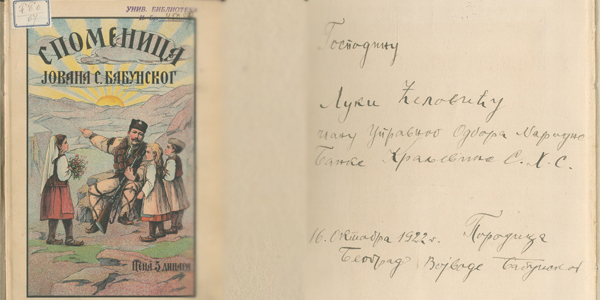 УНИВ. БИБЛИОТЕ
СПОМЕНИЦА
ЈОВАНА С. БАБУНСКОГ
ЦЕНА 3 ДИНАРА
Господину
Луки Ћеловићу
члану Управног Одбора Народне
Банке Краљевине С. Х. С.
16. Октобра 1922 г. Породица
Београд Војводе Бабунског